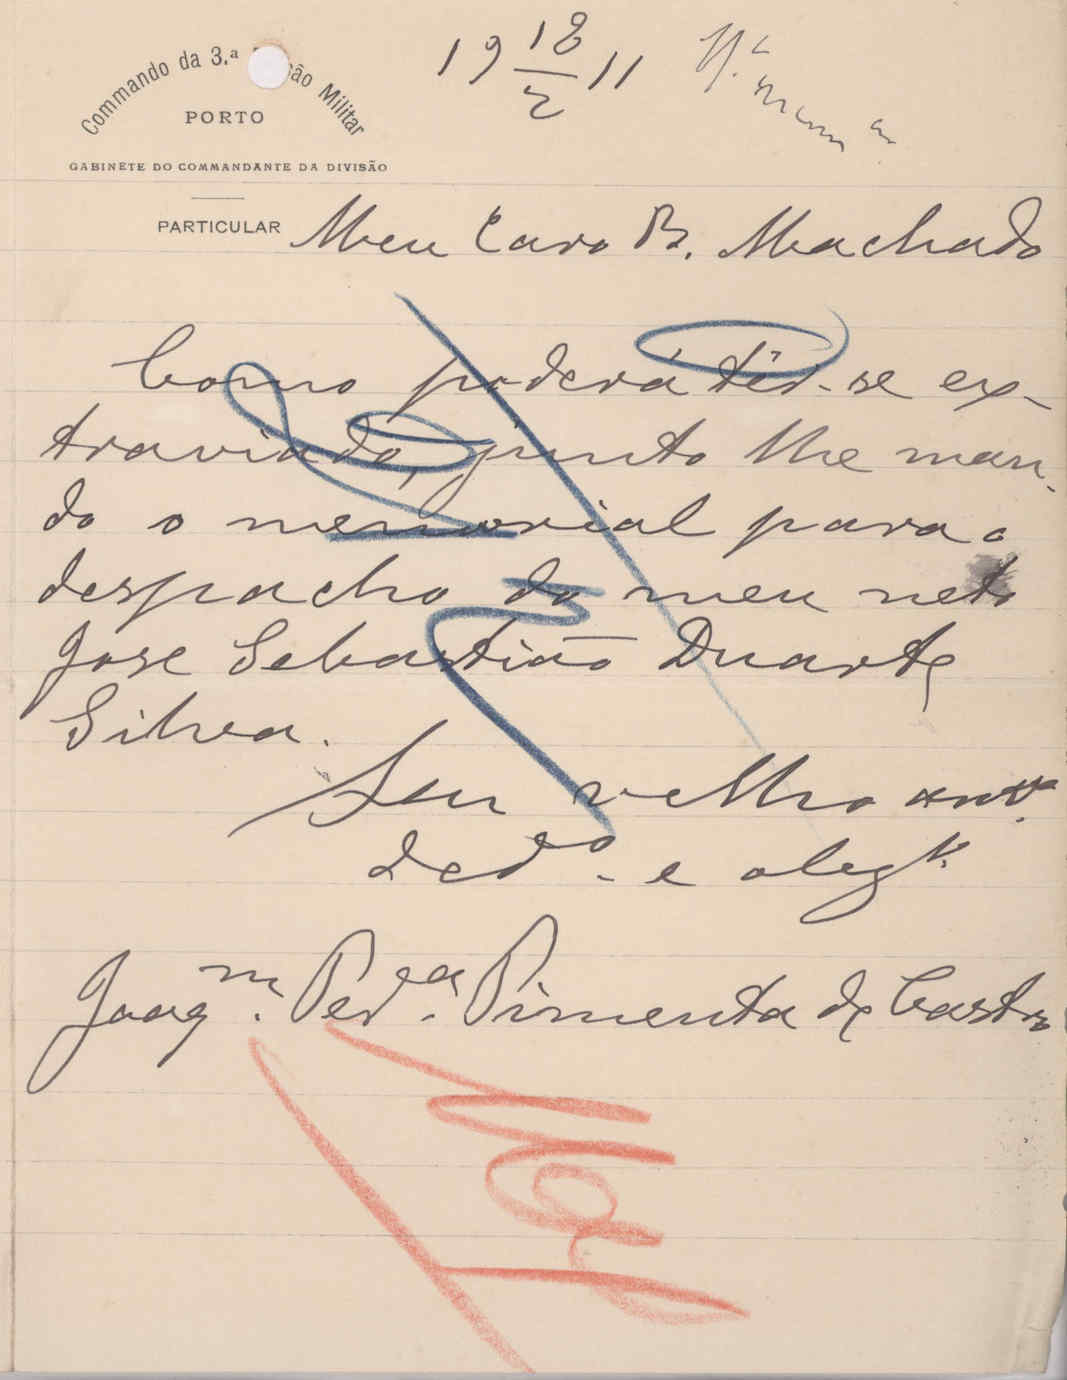 Commando da 3.ª Divisão Militar
PORTO
GABINETE DO COMMANDANTE DA DIVISÃO
PARTICULAR
19 18/2 11
Meu Caro B. Machado
Como poderá têr-se ex-
traviado, junto lhe man-
do o memorial para o
despacho do meu neto
José Sebastião Duarte
Silva.
Seu velho amº.
Dedº. e obrgº.
Joaqm. Perª. Pimenta de Castro